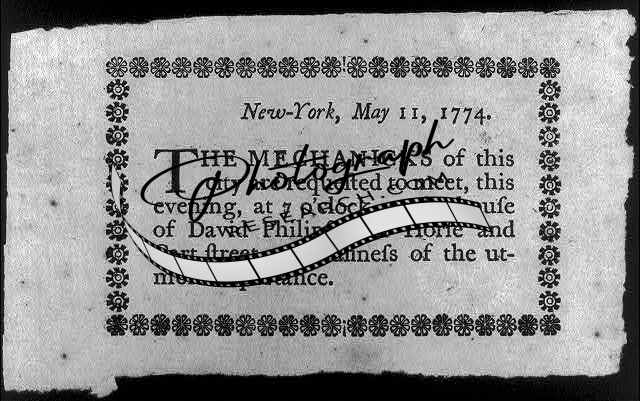 New-York, May 11, 1774.
THE MECHANICKS of this
City are requeſted to meet, this
evening, at 7 o'clock
of David Horſe and
Cart ſtreet of the ut-
Photograph